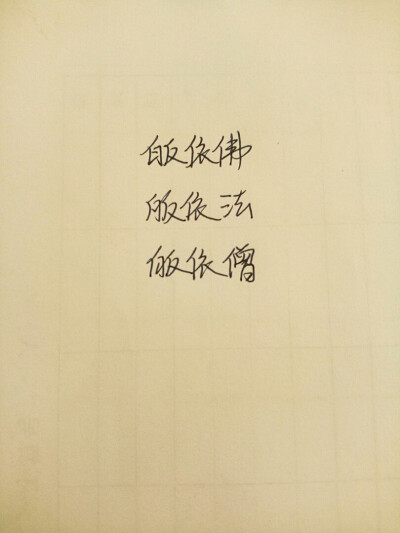 皈依佛
皈依法
皈依僧